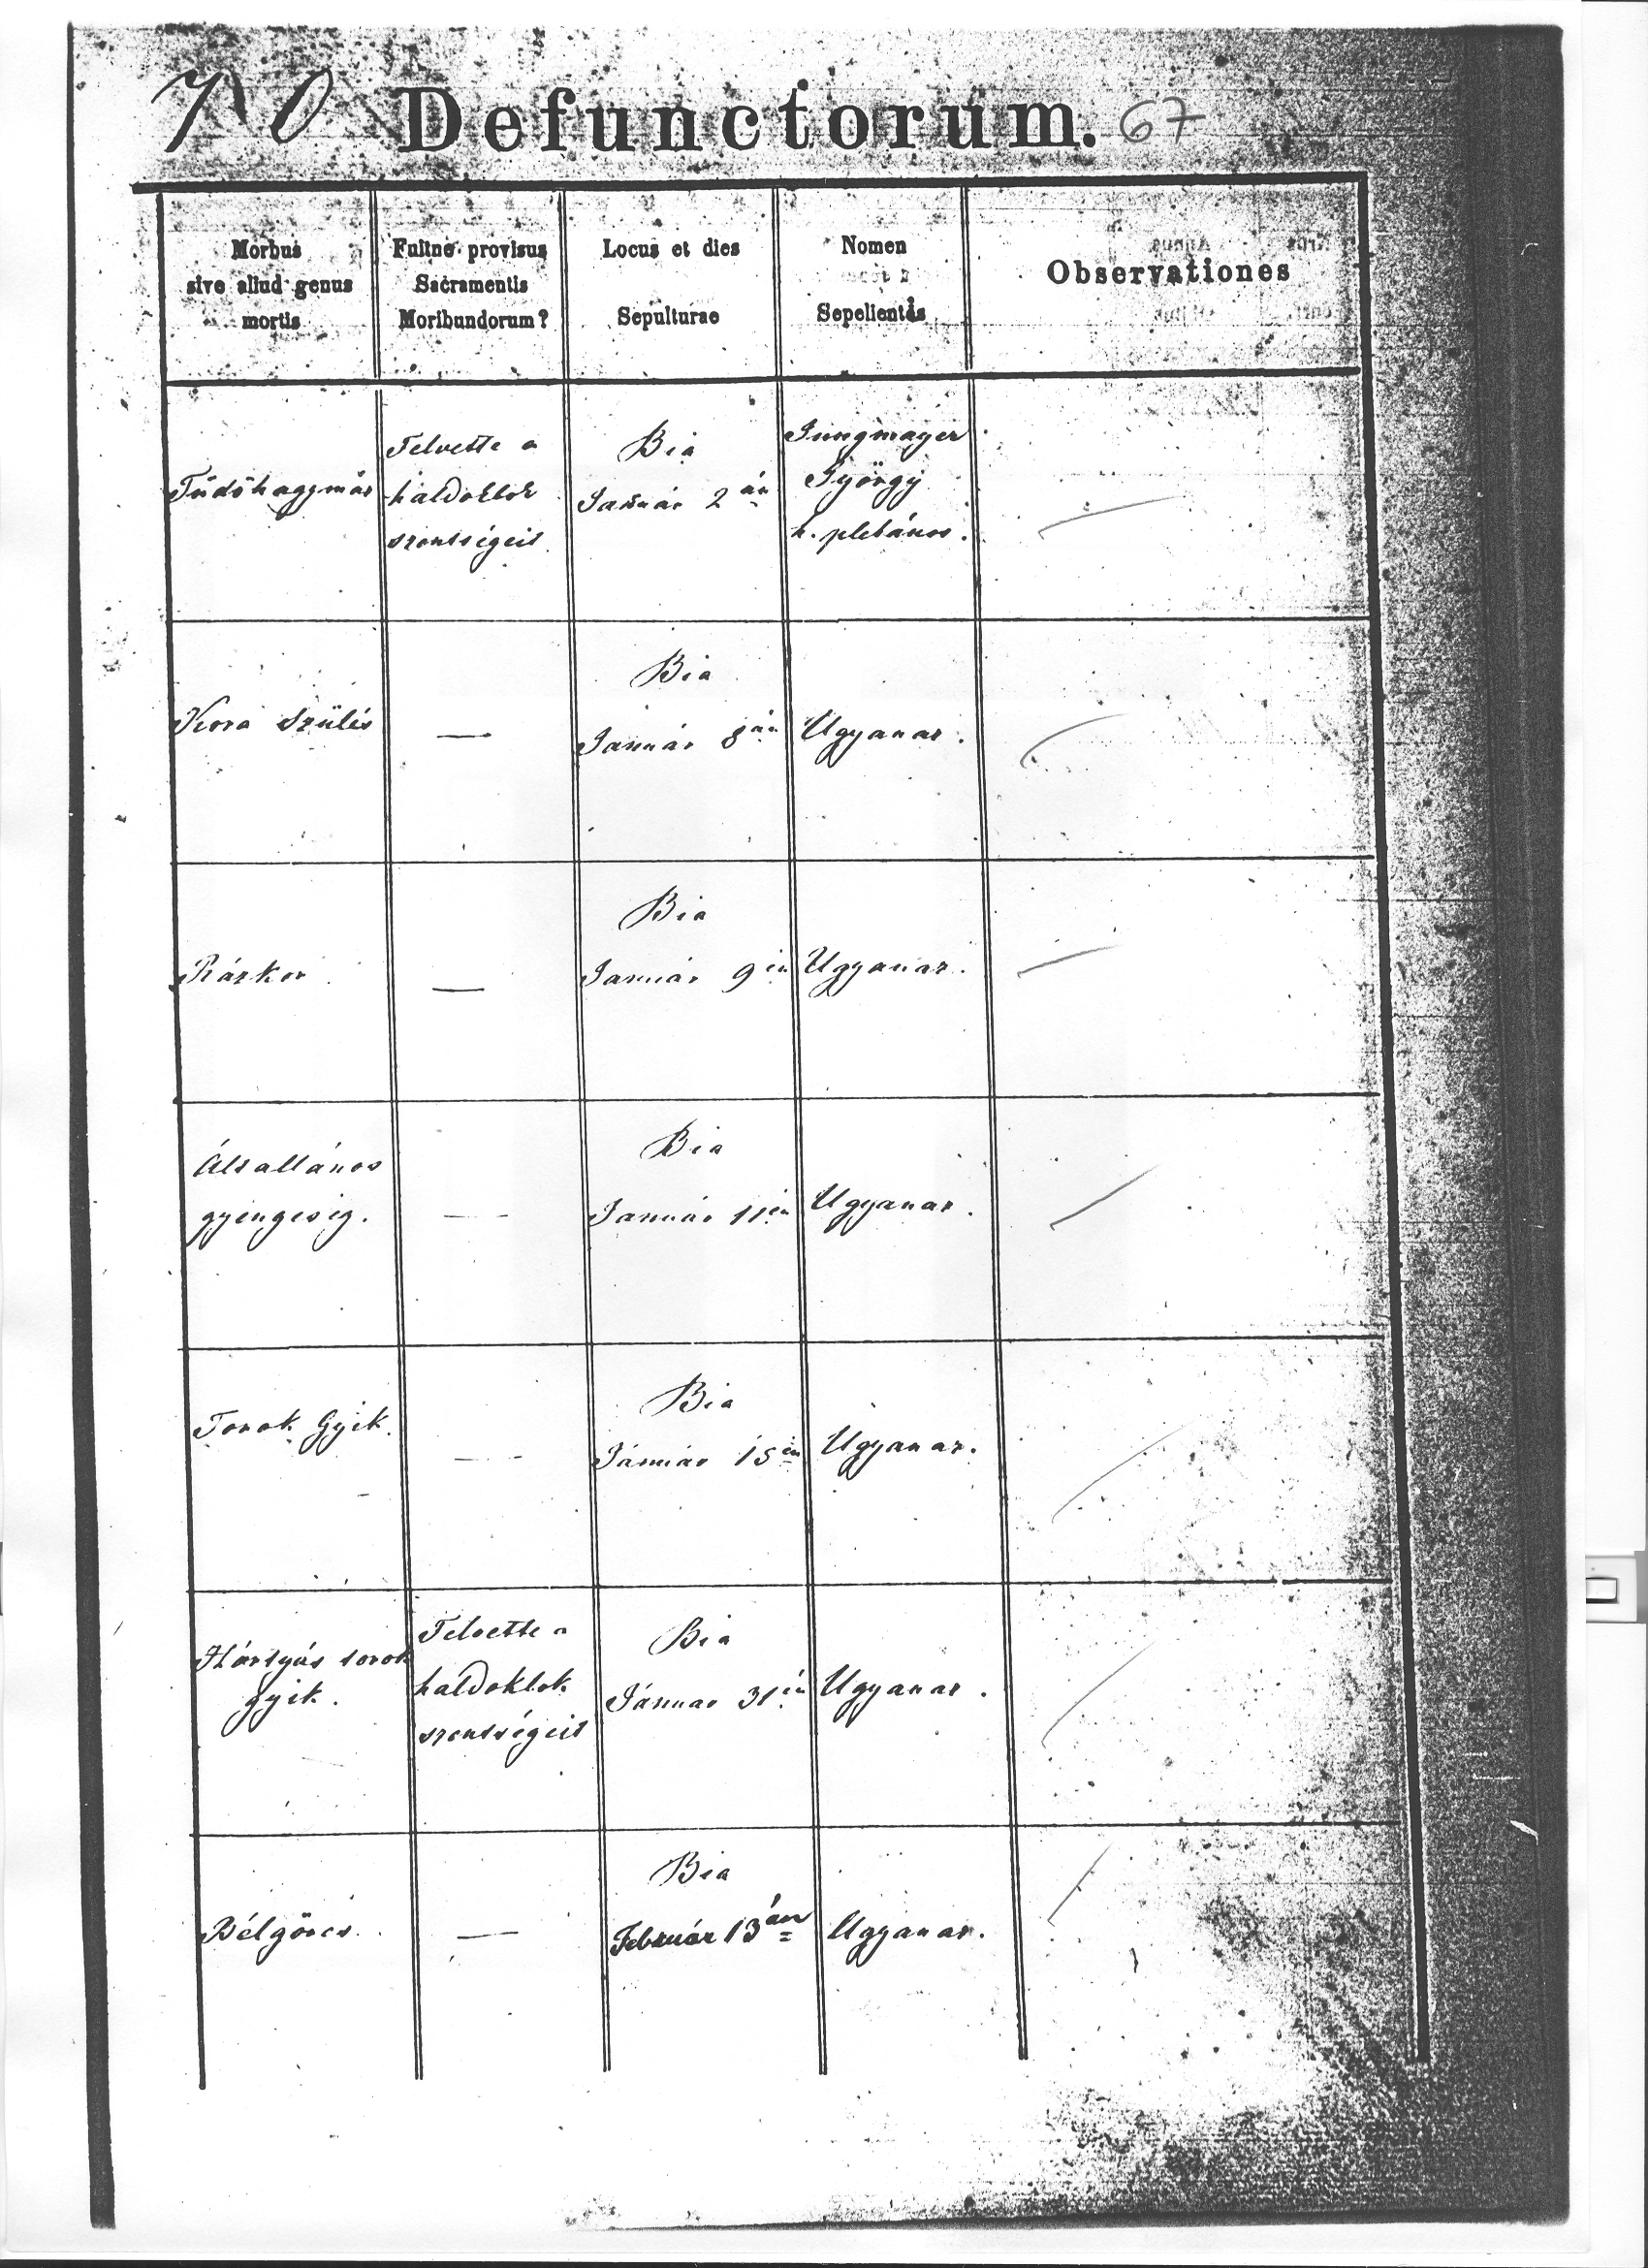 70 Defunctorum. 67
Morbus
sive aliud genus
mortis
Fuitne provisus
Sacramentis
Moribundorum?
Locus et dies
Sepulturae
Nomen
Sepelientis
Observationes
Tüdőhagymáz
Felvette a
haldoklok
szentségeit.
Bia
Január 2 án
Jungmayer
György
h. plebános.
Kora Szülés
—
Bia
Január 8 án
Ugyanaz.
Rázkor
—
Bia
Január 9 én
Ugyanaz.
Általlános
gyengeség.
—
Bia
Január 11 én
Ugyanaz.
Torok Gyik.
—
Bia
Január 15 én
Ugyanaz.
Hártyás torok
gyik.
Felvette a
haldoklok
szentségeit
Bia
Január 31 én
Ugyanaz.
Bélgörcs.
—
Bia
Február 13 án
Ugyanaz.